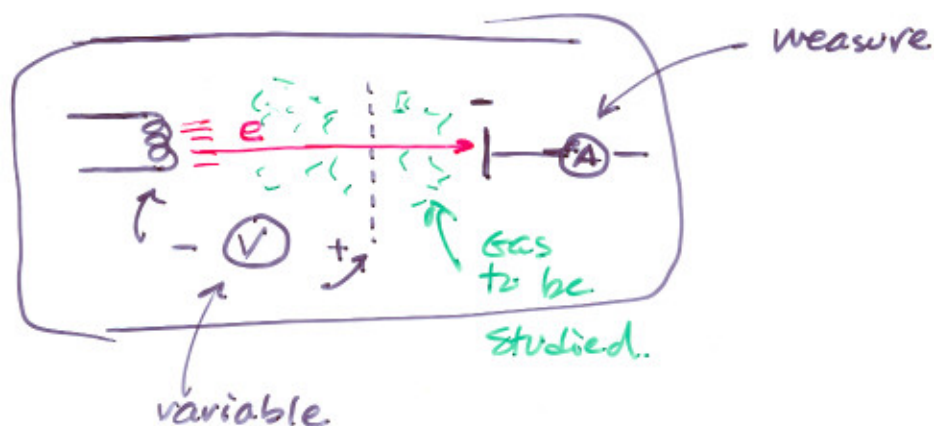 measure
e
A
- V +
Gas
to be
studied.
variable